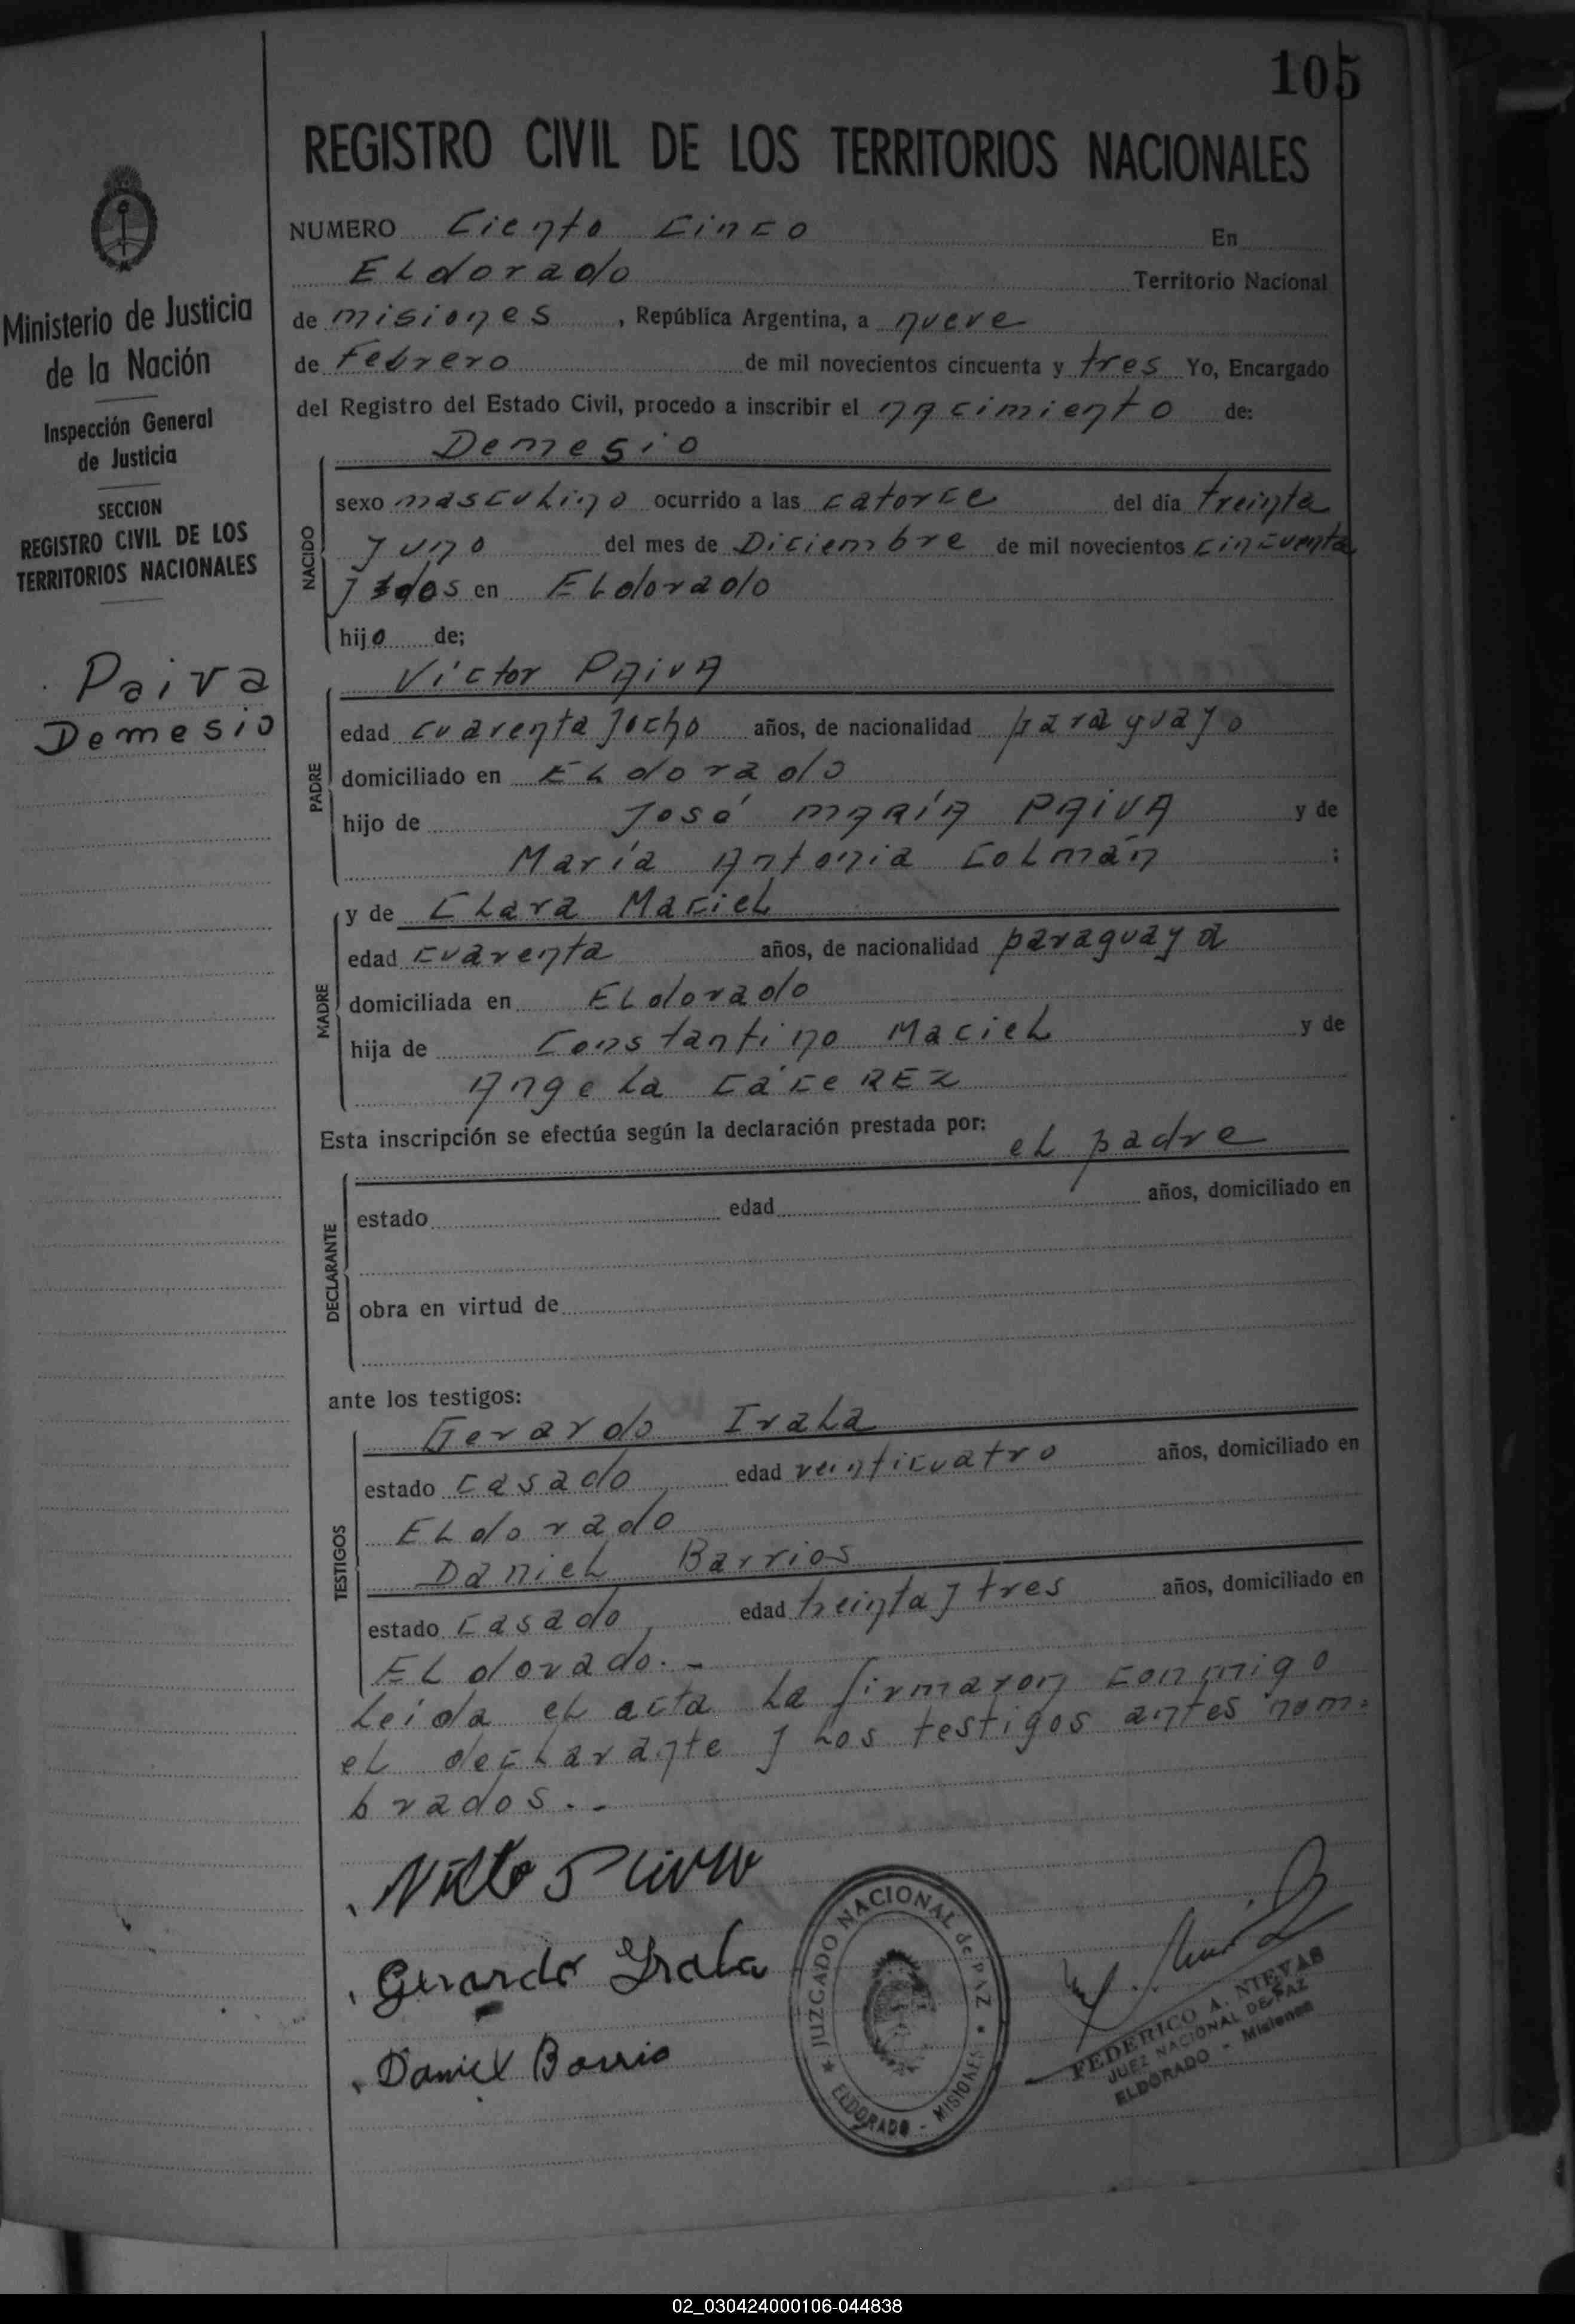 105
REGISTRO CIVIL DE LOS TERRITORIOS NACIONALES
Ministerio de Justicia
de la Nación
Inspección General
de Justicia
SECCION
REGISTRO CIVIL DE LOS
TERRITORIOS NACIONALES
Paiva
Demesio
NUMERO Ciento Cinco En
ELdorado Territorio Nacional
de misiones, República Argentina, a nueve
de Febrero de mil novecientos cincuenta y tres Yo, Encargado
del Registro del Estado Civil, procedo a inscribir el nacimiento de:
Demesio
NACIDO
sexo mascuLino ocurrido a las catorce del día treinta
y uno del mes de Diciembre de mil novecientos cincuenta
y dos en ELdorado
hijo de;
PADRE
Víctor PAivA
edad cuarenta y ocho años, de nacionalidad paraguayo
domiciliado en ELdorado
hijo de José MARíA PAivA y de
María Antonia CoLmán ;
MADRE
y de CLara MacieL
edad cuarenta años, de nacionalidad paraguaya
domiciliada en ELdorado
hija de Constantino MacieL y de
AngeLa CáceREZ
Esta inscripción se efectúa según la declaración prestada por: eL padre
DECLARANTE
estado edad años, domiciliado en
obra en virtud de
ante los testigos:
TESTIGOS
Gerardo IraLa
estado casado edad veinticuatro años, domiciliado en
ELdorado
DanieL Barrios
estado casado, edad treinta y tres años, domiciliado en
ELdorado.-
Leida eL acta La firmaron conmigo
eL decLarante y Los testigos antes nom=
brados.-
Gerardo Yrala
Daniel Barrio
JUZGADO NACIONAL de PAZ
ELDORADO - MISIONES
FEDERICO A. NIEVAS
JUEZ NACIONAL DE PAZ
ELDORADO - Misiones
02_030424000106-044838